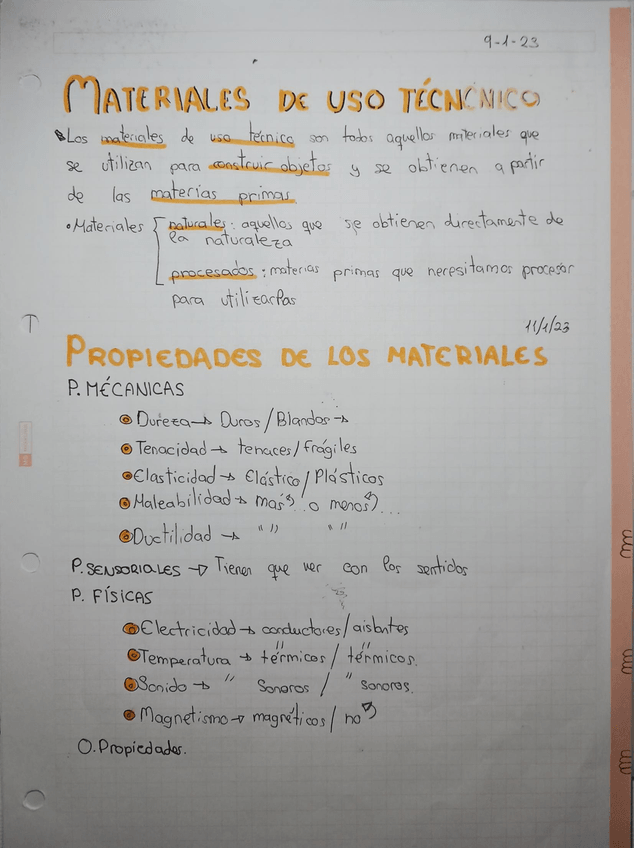 9-1-23
MATERIALES DE USO TÉCNCNICO
Los materiales de uso técnico son todos aquellos materiales que
se utilizan para construir objetos y se obtienen a partir
de las materias primas.
•Materiales naturales: aquellos que se obtienen directamente de
la naturaleza
procesados: materias primas que necesitamos procesar
para utilizarlas
11/1/23
PROPIEDADES DE LOS MATERIALES
P. MÉCANICAS
Dureza → Duros/Blandos →
Tenacidad → tenaces/frágiles
Elasticidad → Elástico/Plásticos
Maleabilidad → mas " o menos " ...
Ductilidad → " " " "
P. SENSORIALES → Tienen que ver con los sentidos
P. FÍSICAS
Electricidad → conductores/aislantes
Temperatura → " térmicos / " térmicos.
Sonido → " Sonoros / " sonoros.
Magnetismo → magnéticos/no "
O. Propiedades.